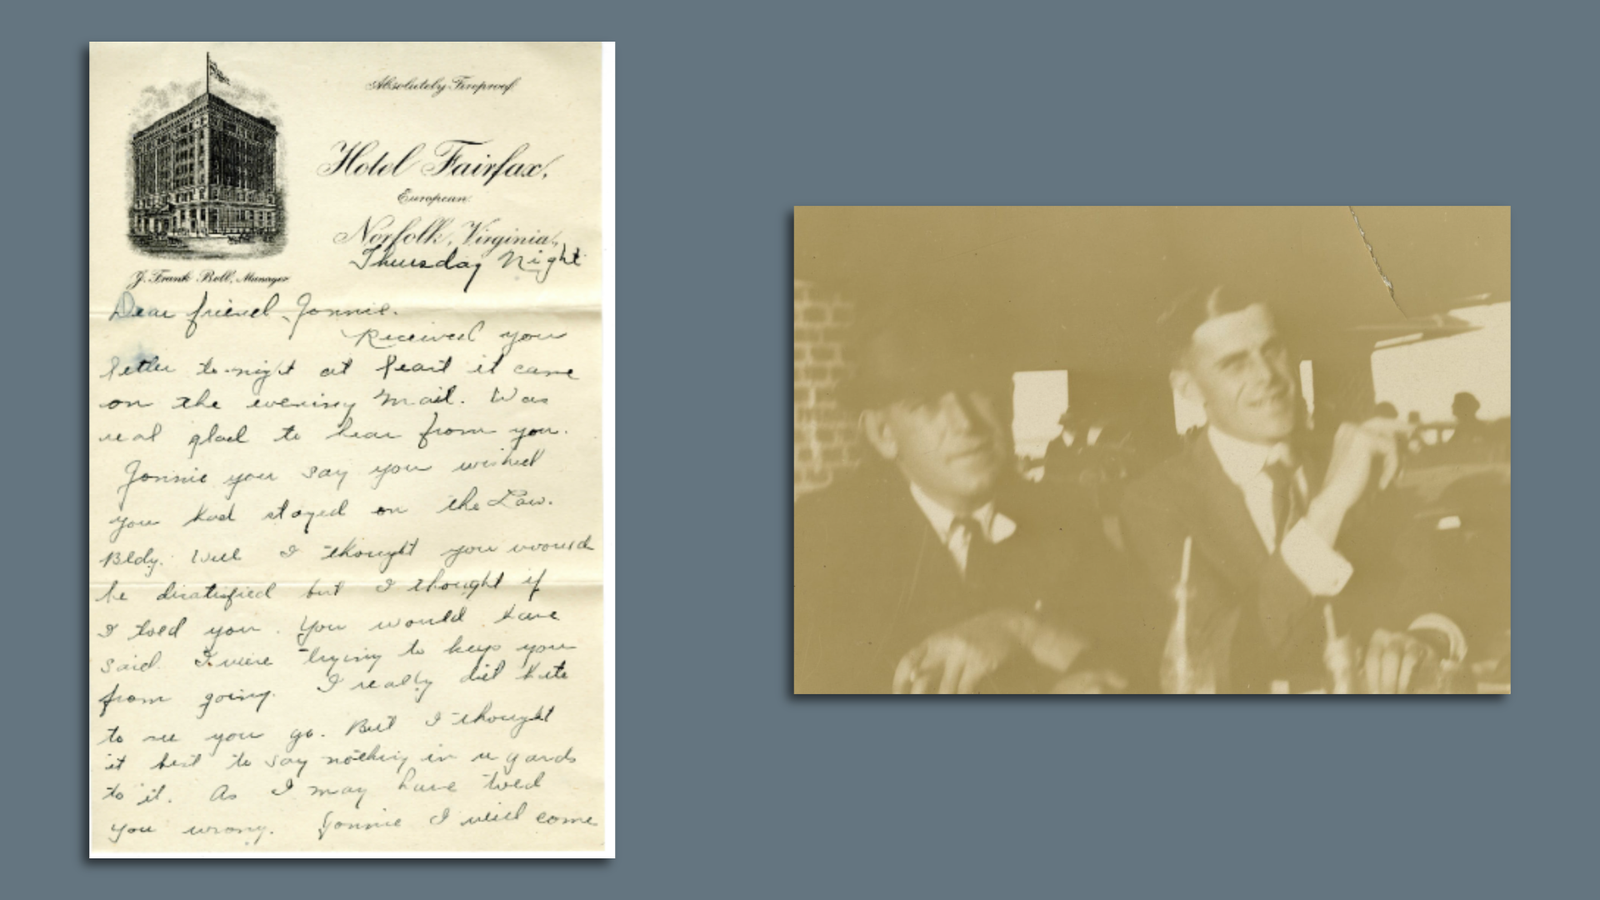 Absolutely Fireproof
Hotel Fairfax,
European
Norfolk, Virginia,
Thursday Night
J. Frank Bell, Manager
Dear friend Jonnie.
Received you
letter to-night at least it came
on the evening mail. Was
real glad to hear from you.
Jonnie you say you wished
you had stayed on the Law.
Bldg. Well I thought you would
be disatisfied but I thought if
I toed you. You would have
said. I were trying to keep you
from going. I really did hate
to see you go. But I thought
it best to say nothing in regards
to it. As I may have toed
you wrong. Jonnie I will come